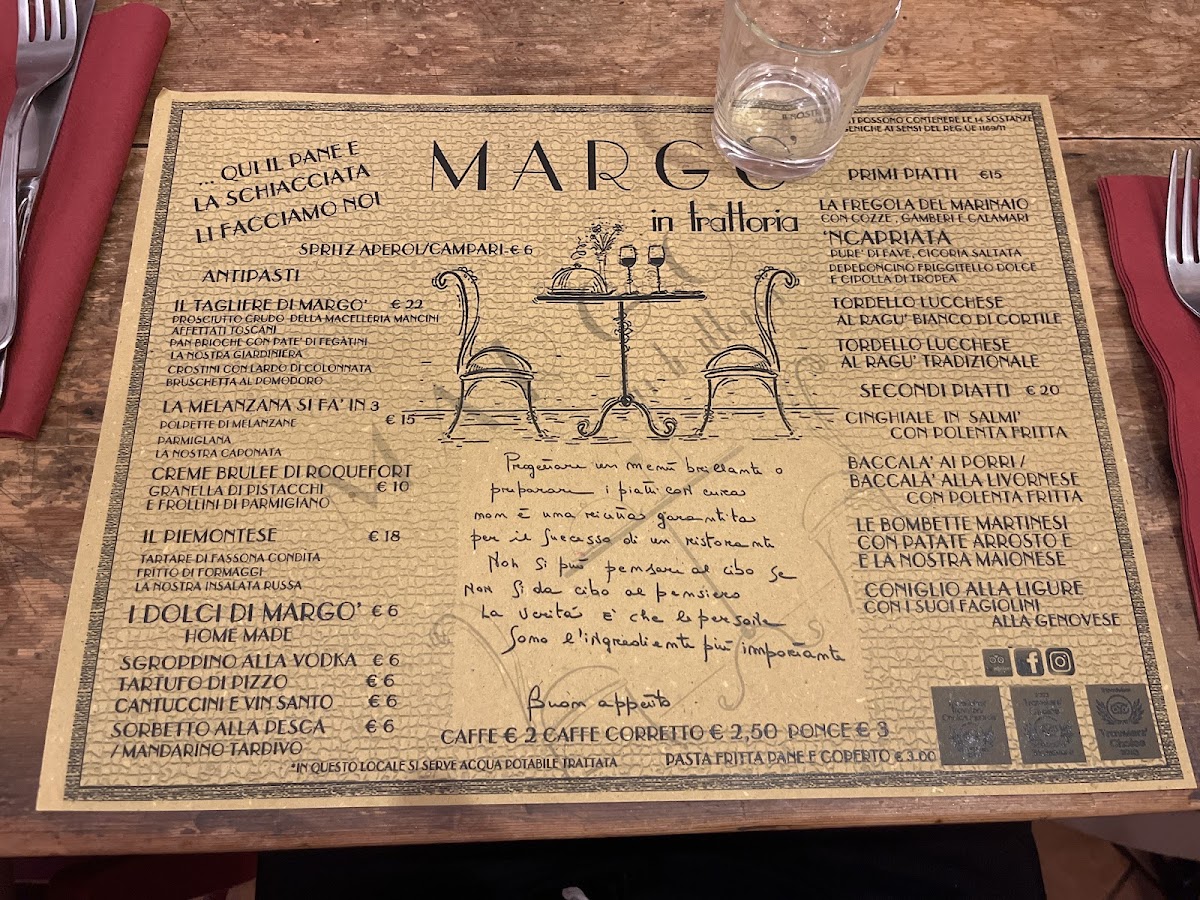 ... QUI IL PANE E
LA SCHIACCIATA
LI FACCIAMO NOI
MARGO'
in trattoria
SPRITZ APEROL/CAMPARI € 6
ANTIPASTI
IL TAGLIERE DI MARGO' € 22
PROSCIUTTO CRUDO DELLA MACELLERIA MANCINI
AFFETTATI TOSCANI
PAN BRIOCHE CON PATE' DI FEGATINI
LA NOSTRA GIARDINIERA
CROSTINI CON LARDO DI COLONNATA
BRUSCHETTA AL POMODORO
LA MELANZANA SI FA' IN 3 € 15
POLPETTE DI MELANZANE
PARMIGIANA
LA NOSTRA CAPONATA
CREME BRULEE DI ROQUEFORT
GRANELLA DI PISTACCHI € 10
E FROLLINI DI PARMIGIANO
IL PIEMONTESE € 18
TARTARE DI FASSONA CONDITA
FRITTO DI FORMAGGI
LA NOSTRA INSALATA RUSSA
I DOLCI DI MARGO' € 6
HOME MADE
SGROPPINO ALLA VODKA € 6
TARTUFO DI PIZZO € 6
CANTUCCINI E VIN SANTO € 6
SORBETTO ALLA PESCA € 6
/ MANDARINO TARDIVO
Progettare un menù brillante o
preparare i piatti con cura
non è una ricetta garantita
per il successo di un ristorante
Non si può pensare al cibo se
Non si da cibo al pensiero
La verità è che le persone
Sono l'ingrediente più importante
Buon appetito
IL NOSTR
I POSSONO CONTENERE LE 14 SOSTANZE
GENICHE AI SENSI DEL REG. UE 1169/11
PRIMI PIATTI €15
LA FREGOLA DEL MARINAIO
CON COZZE, GAMBERI E CALAMARI
'NCAPRIATA
PURE' DI FAVE, CICORIA SALTATA
PEPERONCINO FRIGGITELLO DOLCE
E CIPOLLA DI TROPEA
TORDELLO LUCCHESE
AL RAGU' BIANCO DI CORTILE
TORDELLO LUCCHESE
AL RAGU' TRADIZIONALE
SECONDI PIATTI € 20
CINGHIALE IN SALMI'
CON POLENTA FRITTA
BACCALA' AI PORRI /
BACCALA' ALLA LIVORNESE
CON POLENTA FRITTA
LE BOMBETTE MARTINESI
CON PATATE ARROSTO E
E LA NOSTRA MAIONESE
CONIGLIO ALLA LIGURE
CON I SUOI FAGIOLINI
ALLA GENOVESE
Travelers'
Choice
CAFFE € 2 CAFFE CORRETTO € 2,50 PONCE € 3
*IN QUESTO LOCALE SI SERVE ACQUA POTABILE TRATTATA
PASTA FRITTA PANE E COPERTO € 3.00